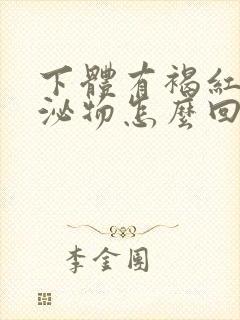 下體有褐紅
泌物怎麼回
李金国